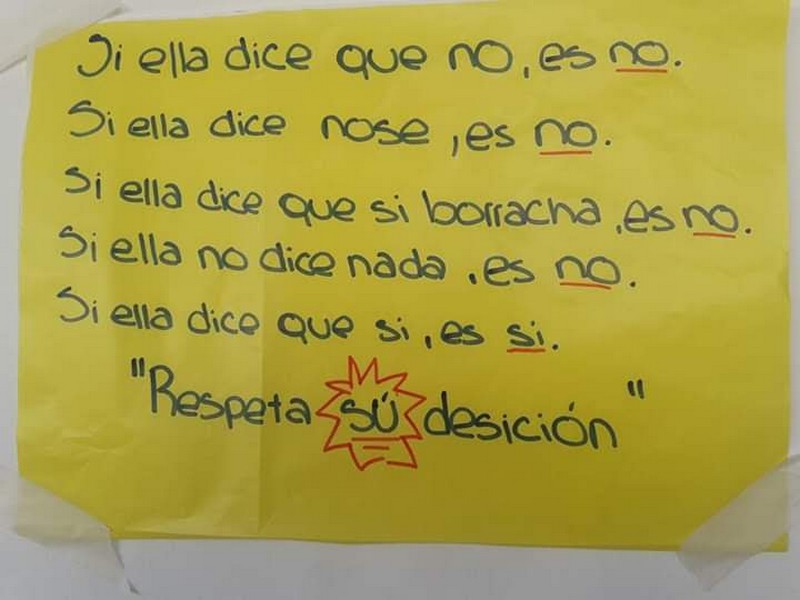 Si ella dice que no, es no.
Si ella dice nose, es no.
Si ella dice que si borracha, es no.
Si ella no dice nada, es no.
Si ella dice que si, es si.
"Respeta sú desición"